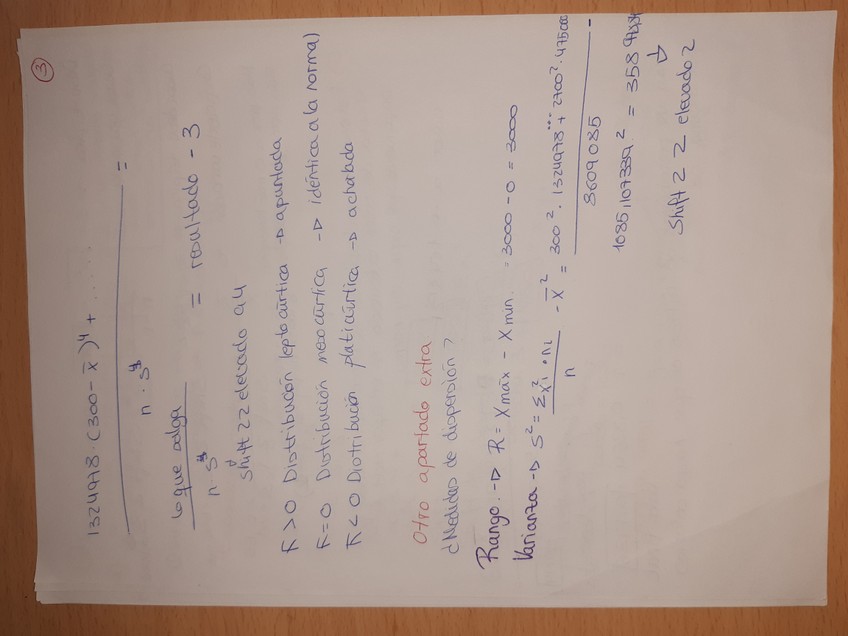 3
1324978 (300 - x̄)⁴ + ......
=
n · s⁴
lo que salga
= resultado - 3
n · s⁴
Shift 22 elevado a 4
K > 0 Distribución leptocúrtica → apuntada
K = 0 Distribución mesocúrtica → idéntica a la normal
K < 0 Distribución platicúrtica → achatada
Otro apartado extra
¿Medidas de dispersión?
Rango → R = Xmáx - Xmín. = 3000 - 0 = 3000
Varianza → S² = Σxi² · ni / n - x̄² = 300² · 1324978 + ... 2700² · 475000 / 3609085 -
1085,107339² = 358
Shift 2 2 elevado 2